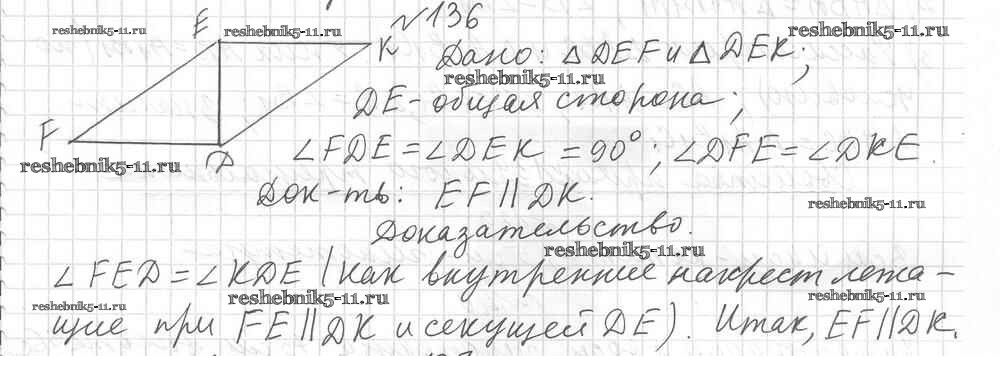 №136
E K F D
Дано: △DEF и △DEK;
DE - общая сторона;
∠FDE = ∠DEK = 90°; ∠DFE = ∠DKE.
Док-ть: EF || DK.
Доказательство.
∠FED = ∠KDE (как внутренние накрест лежа-
щие при FE || DK и секущей DE). Итак, EF || DK.
reshebnik5-11.ru
reshebnik5-11.ru
reshebnik5-11.ru
reshebnik5-11.ru
reshebnik5-11.ru
reshebnik5-11.ru
reshebnik5-11.ru
reshebnik5-11.ru
reshebnik5-11.ru
reshebnik5-11.ru